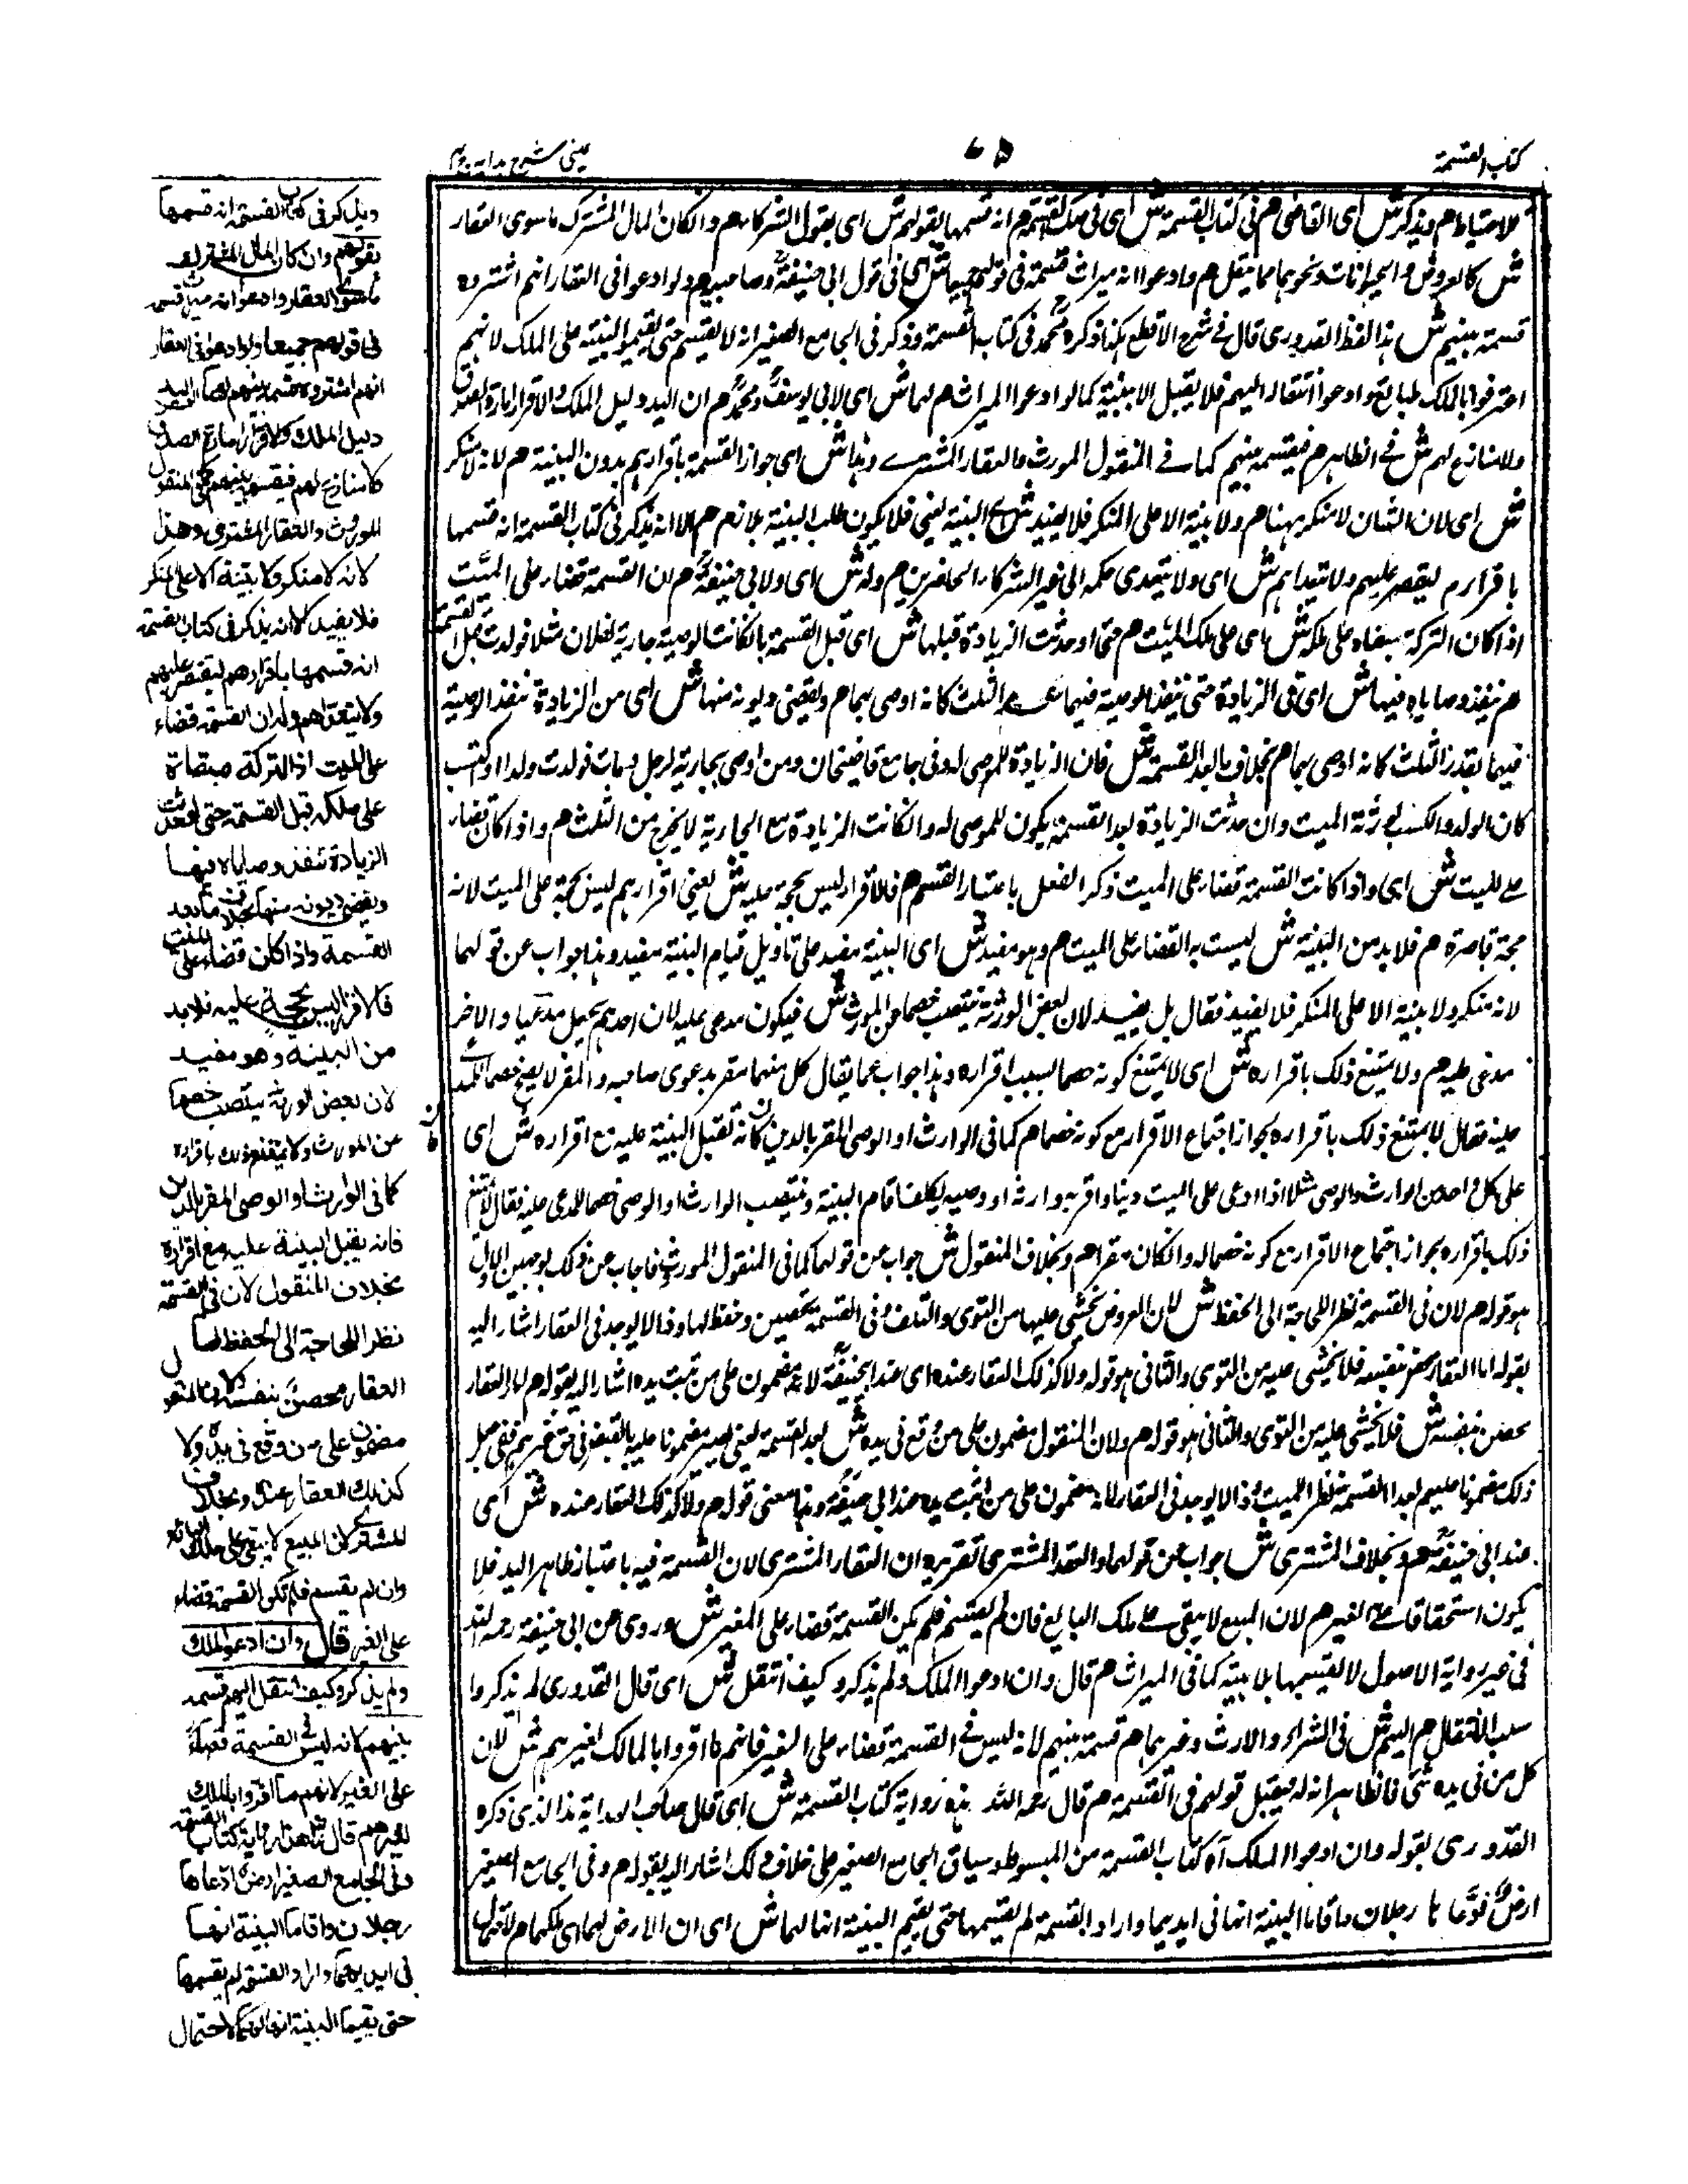 كتاب القسمة
٧٥
عينى شرح هداية
للاحتياط هم ويذكر ش اى القاضى هم فى كتاب القسمة ش اى فى صك القسمة هم انه قسمها بقولهم ش اى بقول الشركاء هم وانكان المال المشترك ماسوى العقار
ش كالعروض والحيوانات ونحوهما مما ينقل هم وادعوا انه ميراث قسمه فى قولهم جميعا ش اى فى قول ابى حنيفة وصاحبيه هم ولو ادعوا فى العقار انهم اشتروه
قسمه بينهم ش هذا لفظ القدورى قال فى شرح الاقطع هكذا ذكره محمد فى كتاب القسمة وذكر فى الجامع الصغير انه لا يقسم حتى يقيموا البينة على الملك لانهم
اعترفوا بالملك للبائع وادعوا انتقاله اليهم فلا يقبل الا ببينة كما لو ادعوا الميراث هم لهما ش اى لابى يوسف ومحمد هم ان اليد دليل الملك والاقرار امارة الصدق
ولا منازع لهم ش فى الظاهر هم فيقسمه بينهم كما فى المنقول الموروث والعقار المشترى وهذا ش اى جواز القسمة باقرارهم بدون البينة هم لانه لا منكر
ش اى لان الشان لا منكر ههنا هم ولا بينة الا على المنكر فلا يفيد ش اى البينة يعنى فلا يكون طلب البينة بلازم هم الا انه يذكر فى كتاب القسمة انه قسمها
باقرارهم ليقتصر عليهم ولا يتعداهم ش اى ولا يتعدى حكمه الى غير الشركاء الحاضرين هم وله ش اى ولابى حنيفة هم ان القسمة قضاء على الميت
اذا كان التركة مبقاة على ملكه ش اى على ملك الميت هم حتى لو حدثت الزيادة قبلها ش اى قبل القسمة بان كانت الوصية جارية لفلان مثلا فولدت قبل القسمة
هم تنفذ وصاياه فيها ش اى فى الزيادة حتى تنفذ الوصية فيما الثلث كانه اوصى بهما هم ويقضى ديونه منها ش اى من الزيادة تنفذ الوصية
فيهما بقدر الثلث كانه اوصى بهما هم بخلاف ما بعد القسمة ش فان الزيادة للموصى له وفى جامع قاضيخان ومن اوصى بجارية لرجل ومات فولدت ولدا او اكتسب
كان الولد والكسب لورثة الميت وان حدثت الزيادة بعد القسمة يكون للموصى له وانكانت الزيادة مع الجارية لا يخرج من الثلث هم واذا كان قضاء
على الميت ش اى واذا كانت القسمة قضاء على الميت ذكر الفعل باعتبار القسم هم فالاقرار ليس بحجة عليه ش يعنى اقرارهم ليس بحجة على الميت لانه
حجة قاصرة هم فلا بد من البينة ش ليست به القضاء على الميت هم وهو مفيد ش اى البينة مفيد على تاويل قيام البينة مفيد وهذا جواب عن قولهما
لانه منكر ولا بينة الا على المنكر فلا يفيد فقال بل يفيد لان بعض الورثة ينتصب خصما عن المورث ش فيكون مدعى عليه لان احدهم يجعل مدعيا والاخر
مدعى عليه هم ولا يمتنع ذلك باقراره ش اى لا يمتنع كونه خصما بسبب اقراره وهذا جواب عما يقال كل منهما مقر بدعوى صاحبه والمقر لا يصح خصما للمدعى
عليه فقال لا يمتنع ذلك باقراره لجواز اجتماع الاقرار مع كونه خصما هم كما فى الوارث او الوصى المقر بالدين فانه تقبل البينة عليه مع اقراره ش اى
على كل واحد من الوارث والوصى مثلا اذا ادعى على الميت دينا واقر به وارثه او وصيه يكلف اقام البينة وينتصب الوارث او الوصى خصما للمدعى عليه فقال لا يمتنع
ذلك باقراره لجواز اجتماع الاقرار مع كونه خصما له وانكان مقرا هم وبخلاف المنقول ش جواب عن قولهما كما فى المنقول الموروث فاجاب عن ذلك بوجهين الاول
هو قوله هم لان فى القسمة نظرا للحاجة الى الحفظ ش لان العروض يخشى عليها من التوى والتلف وفى القسمة تحصين وحفظ لها وذا لا يوجد فى العقار اشار اليه
بقوله اما العقار محصن بنفسه فلا يخشى عليه من التوى والثانى هو قوله ولا كذلك العقار عنده اى عند ابيحنيفة لانه مضمون على من ثبت يده اشار اليه بقوله هم اما العقار
محصن بنفسه ش فلا يخشى عليه من التوى والثانى هو قوله هم ولان المنقول مضمون على من وقع فى يده ش بعد القسمة يعنى يصير مضمونا عليه بالقبض فى حق غيرهم ففى جعل
ذلك مضمونا عليهم بعد القسمة نظر للميت وذا لا يوجد فى العقار لانه مضمون على من اثبت يده عند ابى حنيفة وهذا معنى قوله هم ولا كذلك العقار عنده ش اى
عند ابى حنيفة هم وبخلاف المشترى ش جواب عن قولهما والعقد المشترى تقريره ان العقار المشترى لان القسمة فيه باعتبار ظاهر اليد فلا
يكون استحقاقا على الغير هم لان المبيع لا يبقى على ملك البائع فان لم يقسم فلم يكن القسمة قضاء على الغير ش وروى عن ابى حنيفة رحمه الله
فى غير رواية الاصول لا يقسمها بلا بينة كما فى الميراث هم قال وان ادعوا الملك ولم يذكروا كيف انتقل ش اى قال القدورى لم يذكروا
سبب الانتقال هم اليهم ش فى الشراء والارث وغيرهما هم قسمه بينهم لانه ليس فى القسمة قضاء على الغير فانهم ما اقروا بالمالك لغيرهم ش لان
كل من فى يده شئ فالظاهر انه له فيقبل قولهم فى القسمة هم قال رحمه الله هذه رواية كتاب القسمة ش اى قال صاحب الهداية هذا الذى ذكره
القدورى بقوله وان ادعوا الملك آه كتاب القسمة من المبسوط وسياق الجامع الصغير على خلاف ذلك اشار اليه بقوله هم وفى الجامع الصغير
ارض ادعاها رجلان واقاما البينة انها فى ايديهما وارادا القسمة لم يقسمها حتى يقيم البينة انها لهما ش اى ان الارض لهما اى ملكهما هم لاحتمال
ويذكر فى كتاب القسمة انه قسمها
بقولهم وان كان المال المشترك
ماسوى العقار وادعوا انه ميراث قسمه
فى قولهم جميعا ولو ادعوا فى العقار
انهم اشتروه قسمه بينهم لهما ان اليد
دليل الملك والاقرار امارة الصدق
ولا منازع لهم فيقسمه بينهم كما فى المنقول
الموروث والعقار المشترى وهذا
لانه لا منكر ولا بينة الا على المنكر
فلا يفيد الا انه يذكر فى كتاب القسمة
انه قسمها باقرارهم ليقتصر عليهم
ولا يتعداهم وله ان القسمة قضاء
على الميت اذ التركة مبقاة
على ملكه قبل القسمة حتى لو حدثت
الزيادة تنفذ وصاياه فيها
ويقضى ديونه منها بخلاف ما بعد
القسمة واذا كان قضاء على الميت
فالاقرار ليس بحجة عليه فلا بد
من البينة وهو مفيد
لان بعض الورثة ينتصب خصما
عن المورث ولا يمتنع ذلك باقراره
كما فى الوارث او الوصى المقر بالدين
فانه يقبل البينة عليه مع اقراره
بخلاف المنقول لان فى القسمة
نظرا للحاجة الى الحفظ اما
العقار محصن بنفسه ولان المنقول
مضمون على من وقع فى يده ولا
كذلك العقار عنده وبخلاف
المشترى لان المبيع لا يبقى على ملك البائع
وان لم يقسم فلم تكن القسمة قضاء
على الغير قال وان ادعوا الملك
ولم يذكروا كيف انتقل اليهم قسمه
بينهم لانه ليس فى القسمة قضاء
على الغير لانهم ما اقروا بالملك
لغيرهم قال هذا رواية كتاب القسمة
وفى الجامع الصغير ارض ادعاها
رجلان واقاما البينة انها
فى ايديهما وارادا القسمة لم يقسمها
حتى يقيما البينة انها لهما لاحتمال